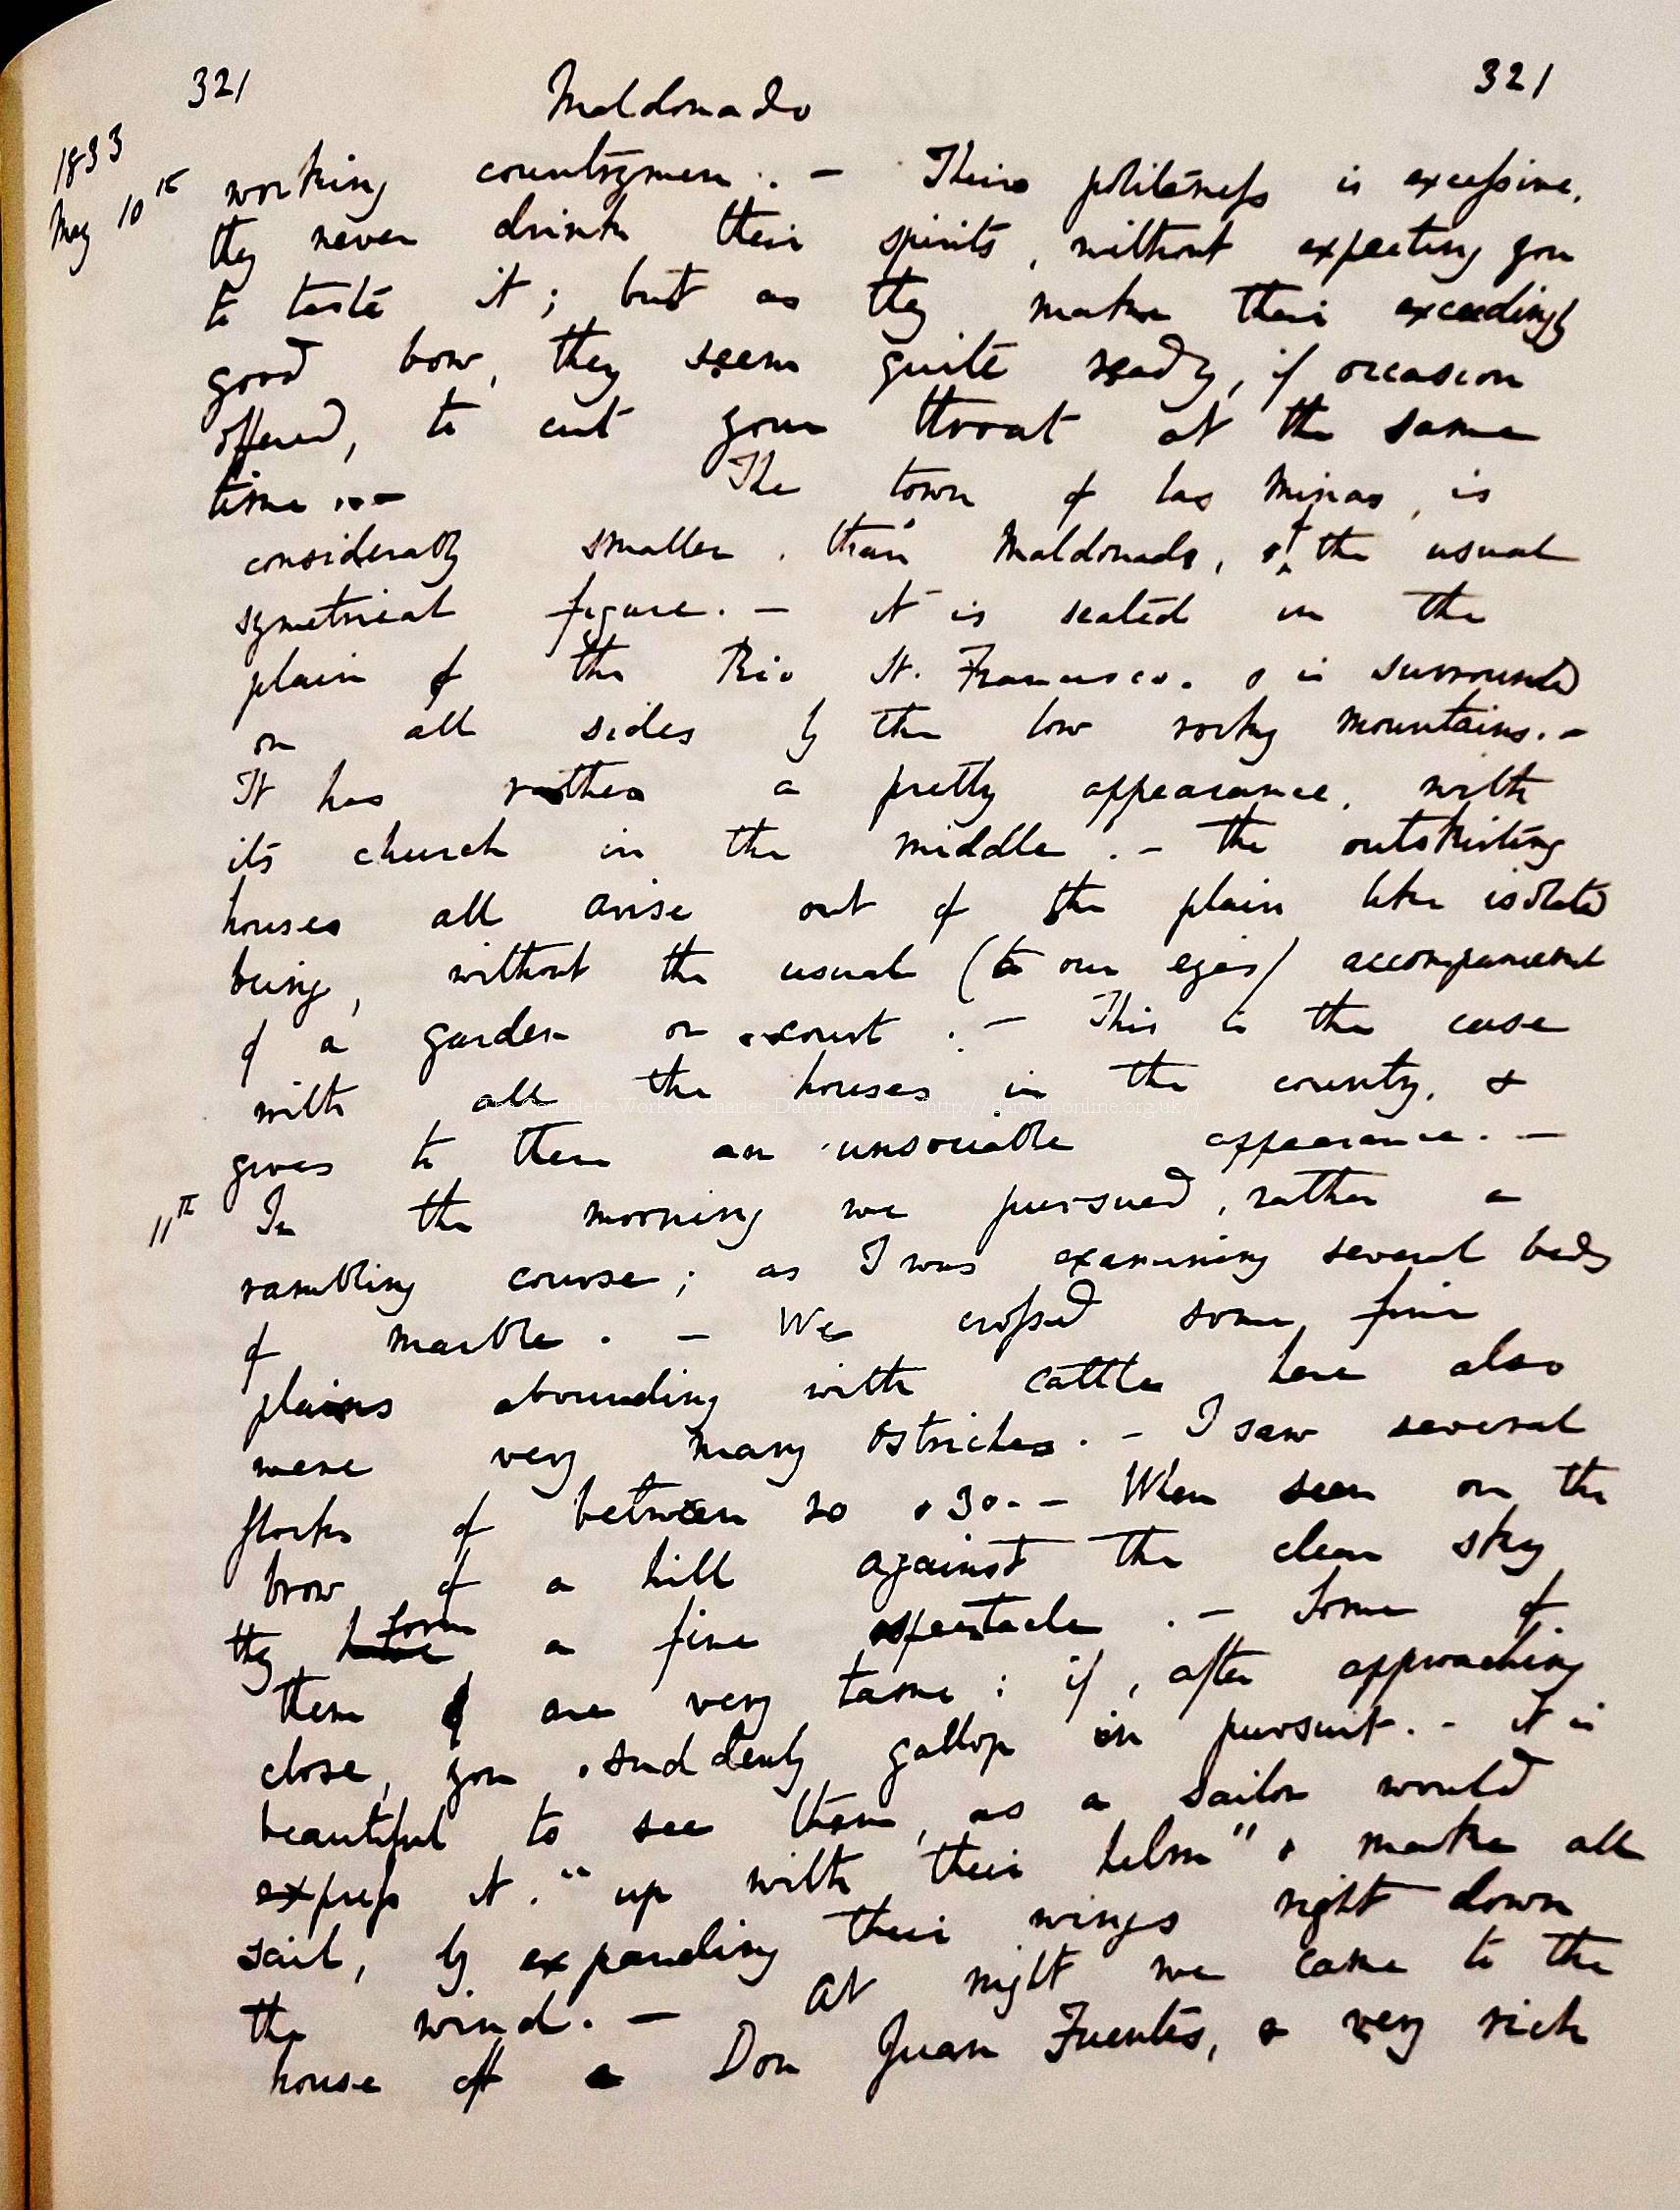 321 Maldonado 321
1833
May 10th working countrymen. — Their politeness is excessive,
they never drink their spirits, without expecting you
to taste it; but as they make their exceedingly
good bow, they seem quite ready, if occasion
offered, to cut your throat at the same
time. — The town of Las Minas, is
considerably smaller, than Maldonado, of the usual
symetrical figure. — it is seated in the
plain of the Rio St. Francisco. & is surrounded
on all sides by the low rocky mountains. —
It has rather a pretty appearance, with
its church in the middle. — the outskirting
houses all arise out of the plain like isolated
being, without the usual (to our eyes) accompaniment
of a garden or court. — This is the case
with all the houses in the county, &
gives to them an unsociable appearance. —
11th In the morning we pursued, rather a
rambling course; as I was examining several beds
of marble. — We crossed some fine
plains abounding with cattle, here also
were very many ostriches. — I saw several
flocks of between 20 & 30. — When seen on the
brow of a hill against the clear sky
they form a fine spectacle. — Some of
them are very tame: if, after approaching
close, you suddenly gallop in pursuit. - it is
beautiful to see them, as a sailor would
express it. "up with their helm" & make all
sail, by expanding their wings right down
the wind. — At night we came to the
house of Don Juan Fuentes, a very rich